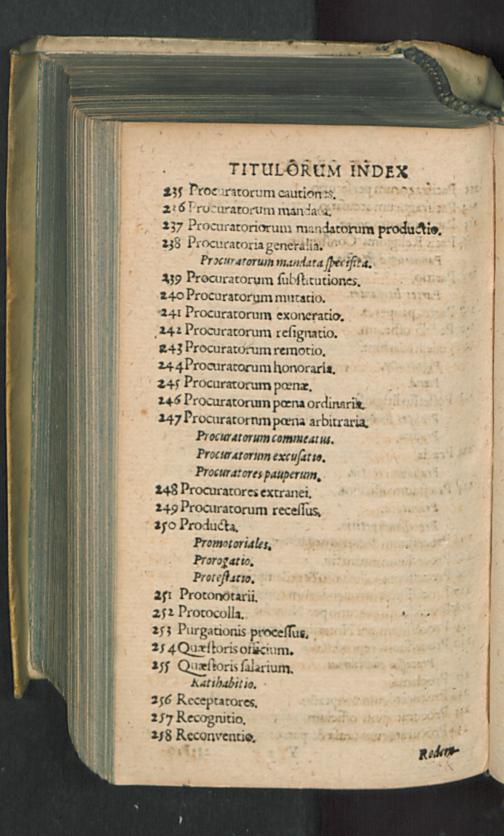 TITULORUM INDEX
235 Procuratorum cautiones.
236 Procuratorum mandata.
237 Procuratoriorum mandatorum productio.
238 Procuratoria generalia.
Procuratorum mandata specifica.
239 Procuratorum ſubſtitutiones.
240 Procuratorum mutatio.
241 Procuratorum exoneratio.
242 Procuratorum reſignatio.
243 Procuratorum remotio.
244 Procuratorum honoraria.
245 Procuratorum pœnæ.
246 Procuratorum pœna ordinaria.
247 Procuratorum pœna arbitraria.
Procuratorum commeatus.
Procuratorum excuſatio.
Procuratores pauperum.
248 Procuratores extranei.
249 Procuratorum receſſus.
250 Producta.
Promotoriales.
Prorogatio.
Proteſtatio.
251 Protonotarii.
252 Protocolla.
253 Purgationis proceſſus.
254 Quæſtoris officium.
255 Quæſtoris ſalarium.
Ratihabitio.
256 Receptatores.
257 Recognitio.
258 Reconventio.